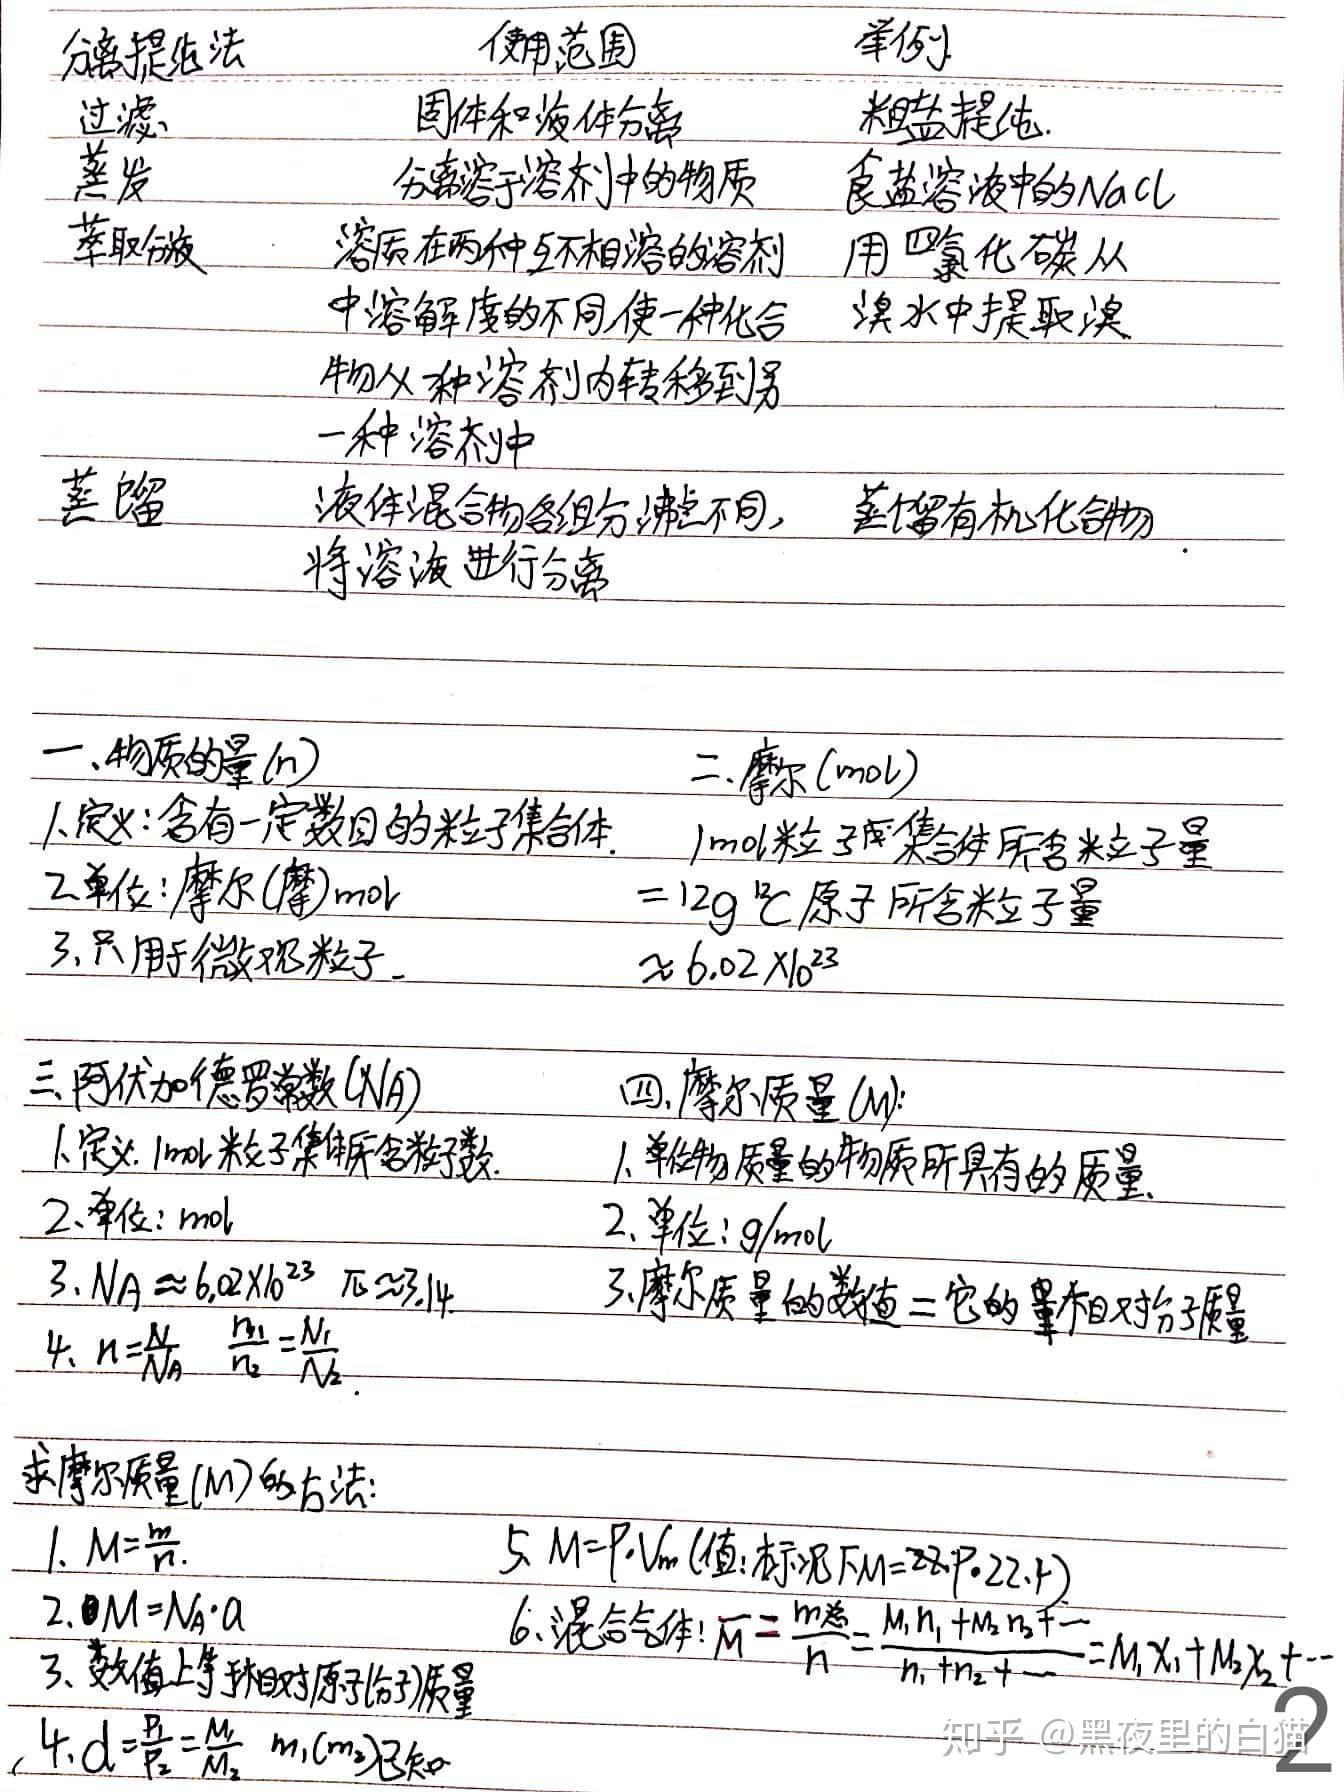 分离提纯法 使用范围 举例
过滤 固体和液体分离 粗盐提纯.
蒸发 分离溶于溶剂中的物质 食盐溶液中的NaCl
萃取分液 溶质在两种互不相溶的溶剂 用四氯化碳从
中溶解度的不同,使一种化合 溴水中提取溴
物从一种溶剂内转移到另
一种溶剂中
蒸馏 液体混合物各组分沸点不同, 蒸馏有机化合物.
将溶液进行分离
一、物质的量(n) 二、摩尔(mol)
1、定义:含有一定数目的粒子集合体. 1mol粒子集合体所含粒子量
2、单位:摩尔(摩)mol =12g ¹²C原子所含粒子量
3、只用于微观粒子. ≈6.02×10²³
三、阿伏加德罗常数(NA) 四、摩尔质量(M):
1、定义:1mol粒子集体所含粒子数. 1、单位物质量的物质所具有的质量.
2、单位:mol 2、单位:g/mol
3、NA≈6.02×10²³ π≈3.14. 3、摩尔质量的数值=它的相对分子质量
4、n=N/NA n₁/n₂=N₁/N₂.
求摩尔质量(M)的方法:
1、M=m/n. 5、M=ρ·Vm(值:标况下M=ρ·22.4)
2、M=NA·a 6、混合气体:M̅=m总/n=(M₁n₁+M₂n₂+…)/(n₁+n₂+…)=M₁x₁+M₂x₂+…
3、数值上等于相对原子(分子)质量
4、d=ρ₁/ρ₂=M₁/M₂ m₁(m₂)已知
知乎 @黑夜里的白猫
2